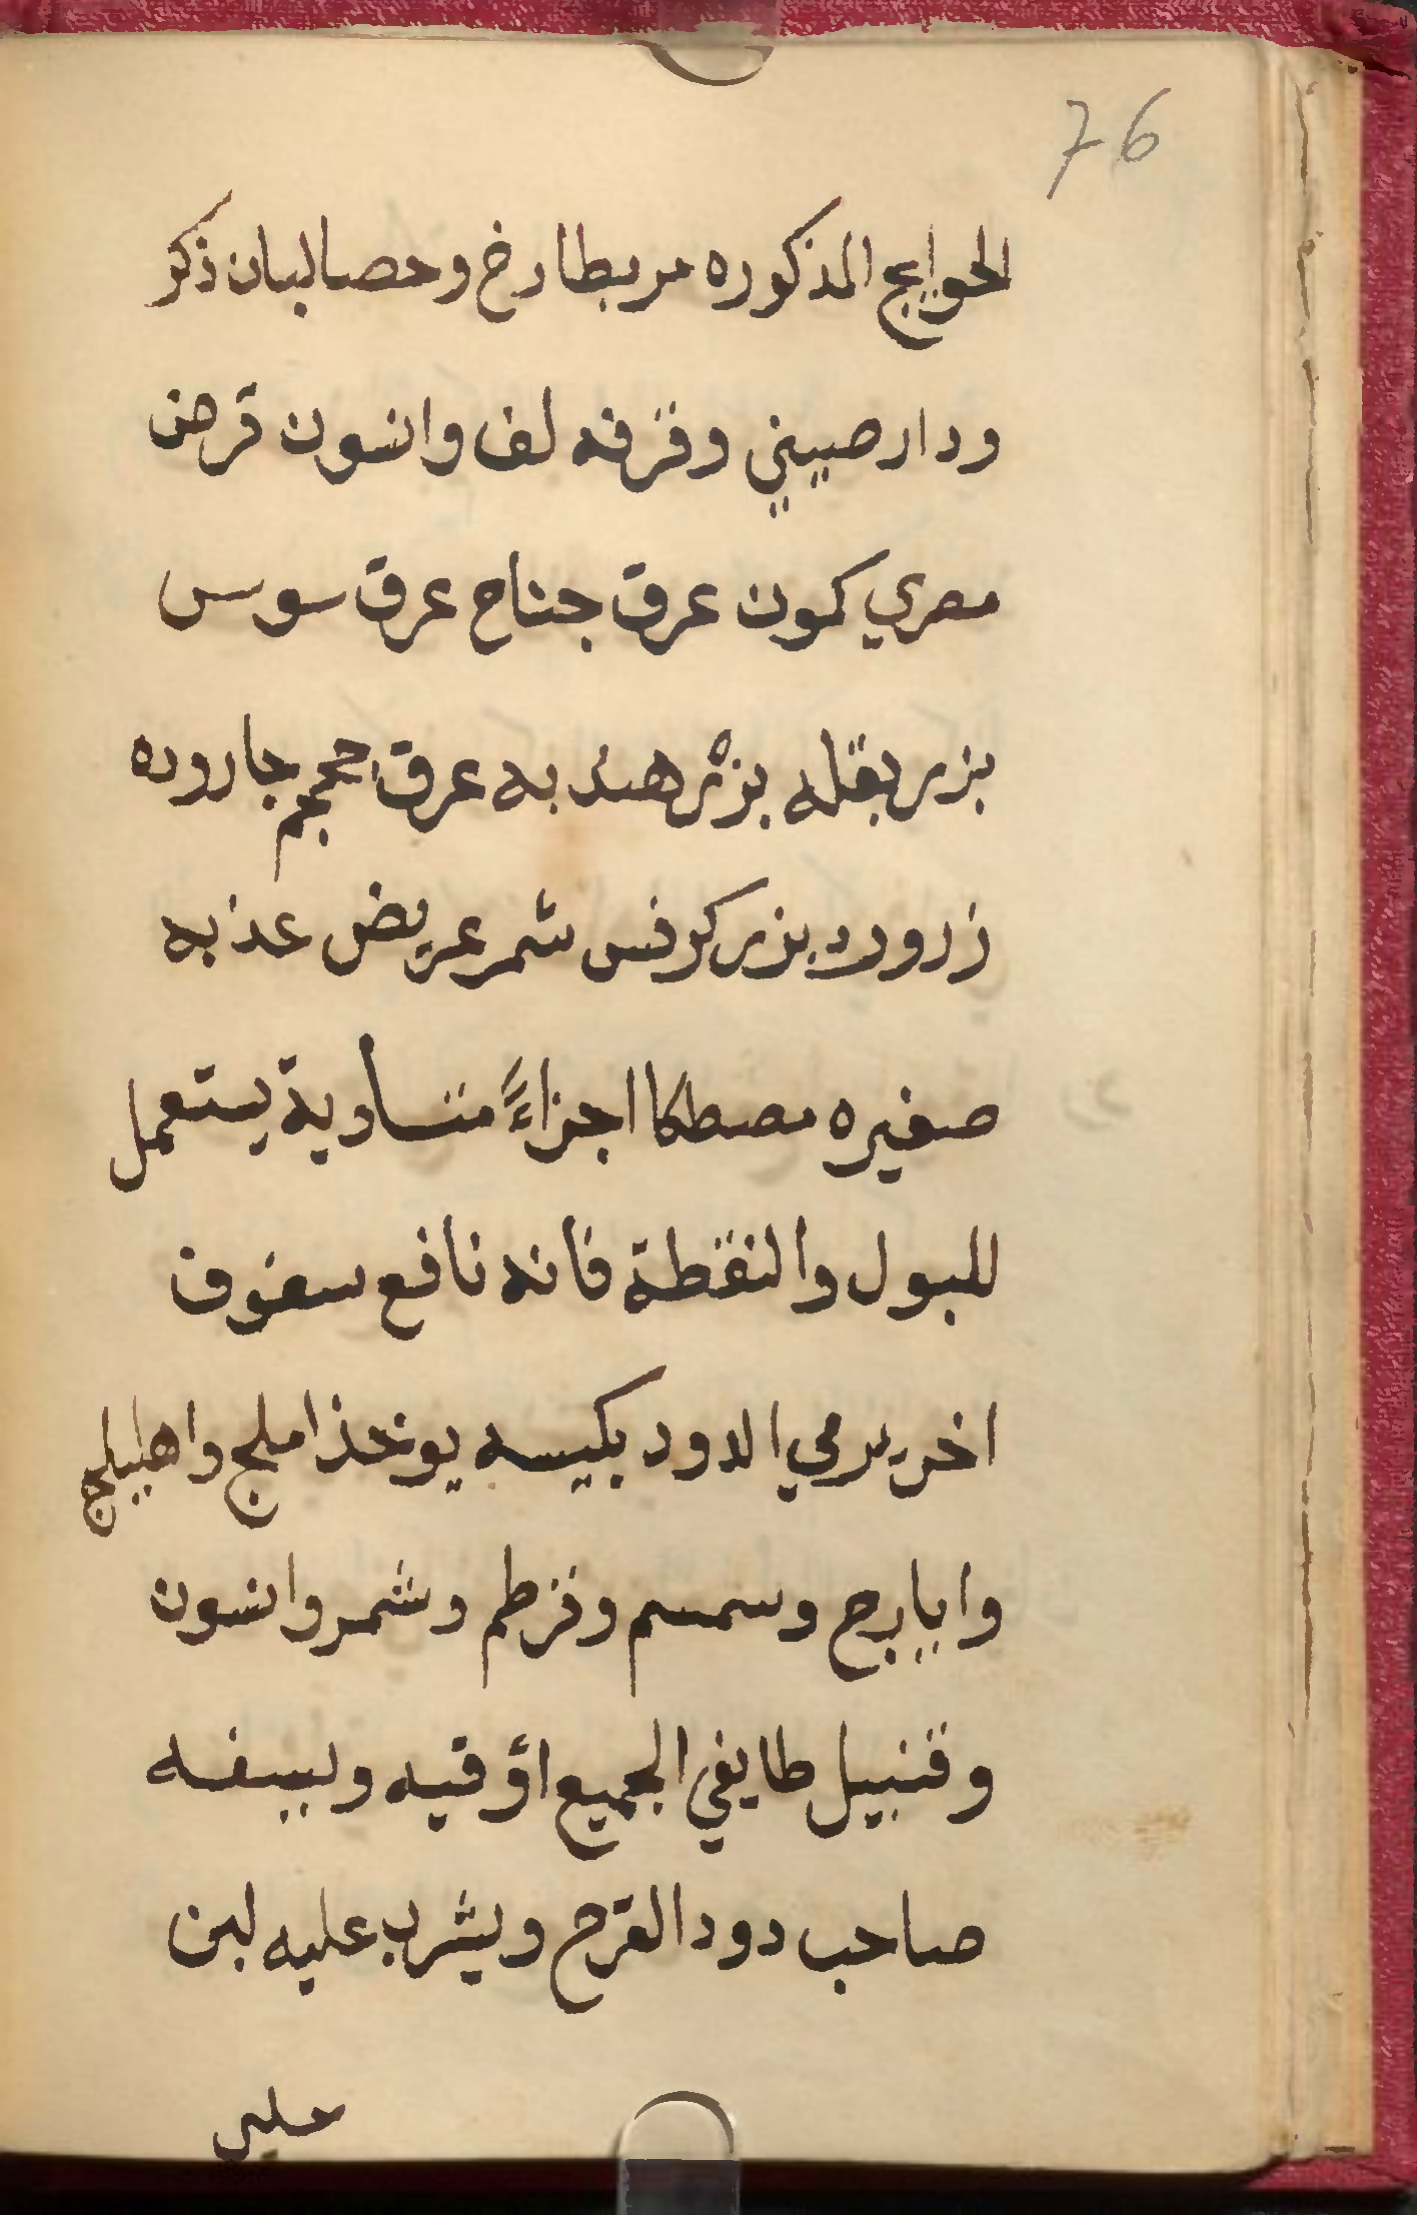 76
الحوايج المذكوره مر بطارخ وحصالبان ذكر
ودار صيني وقرفه لف وانسون قرص
مصري كمون عرق جناح عرق سوس
بزر بقله بزر هندبه عرق جاروده
زرورد بزر كرفس شمر عريض عذبه
صغيره مصطكا اجزاءً متساوية يستعمل
للبول والنقطة فانه نافع سفوف
اخر يرمي الدود بكيسه يوخذ املج واهليلج
وايارج وسمسم وقرطم وشمر وانسون
وقنبيل طايفي الجميع اوقيه ويسفه
صاحب دود القرح ويشرب عليه لبن
حليب